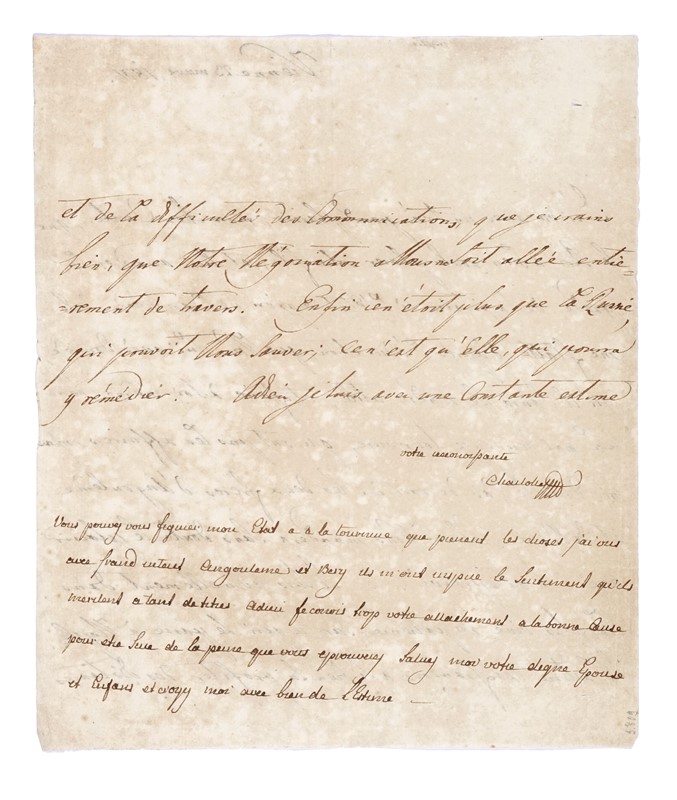 et de la difficulté des Communications, que je crains
bien, que Notre Négociation a Mous soit allée entie=
=rement de travers. Enfin ce n'étoit plus que la Russie,
qui pouvoit Nous Sauver; ce n'est qu'Elle, qui pourra
y rémédier. Adieu je suis avec une Constante estime
votre reconoisante
Charlotte
Vous pouvez vous figurer mon Etat a la tournure que prenent les choses j'ai vus
avec Angouleme et Bery ils m'ont inspiré le Sentiment qu'ils
meritent a tant de titres Adieu je conois trop votre attachement a la bonne Cause
pour etre Sure de la peine que vous eprouverez Saluez moi votre digne Epouse
et Enfans et croyez moi avec bien de l'Estime